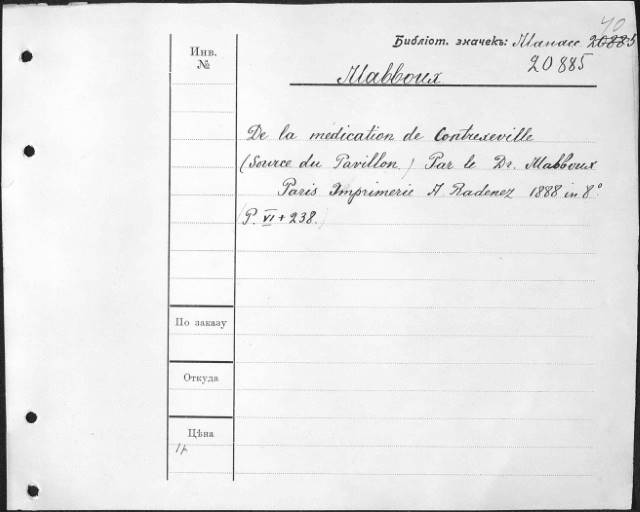 40
Библіот. значекъ: Манасе 20885
20885
Инв.
№
Mabboux
De la médication de Contrexeville
(Source du Pavillon) Par le Dr. Mabboux
Paris Imprimerie A Radenez 1888 in 8°
(P. VI + 238.)
По заказу
Откуда
Цѣна